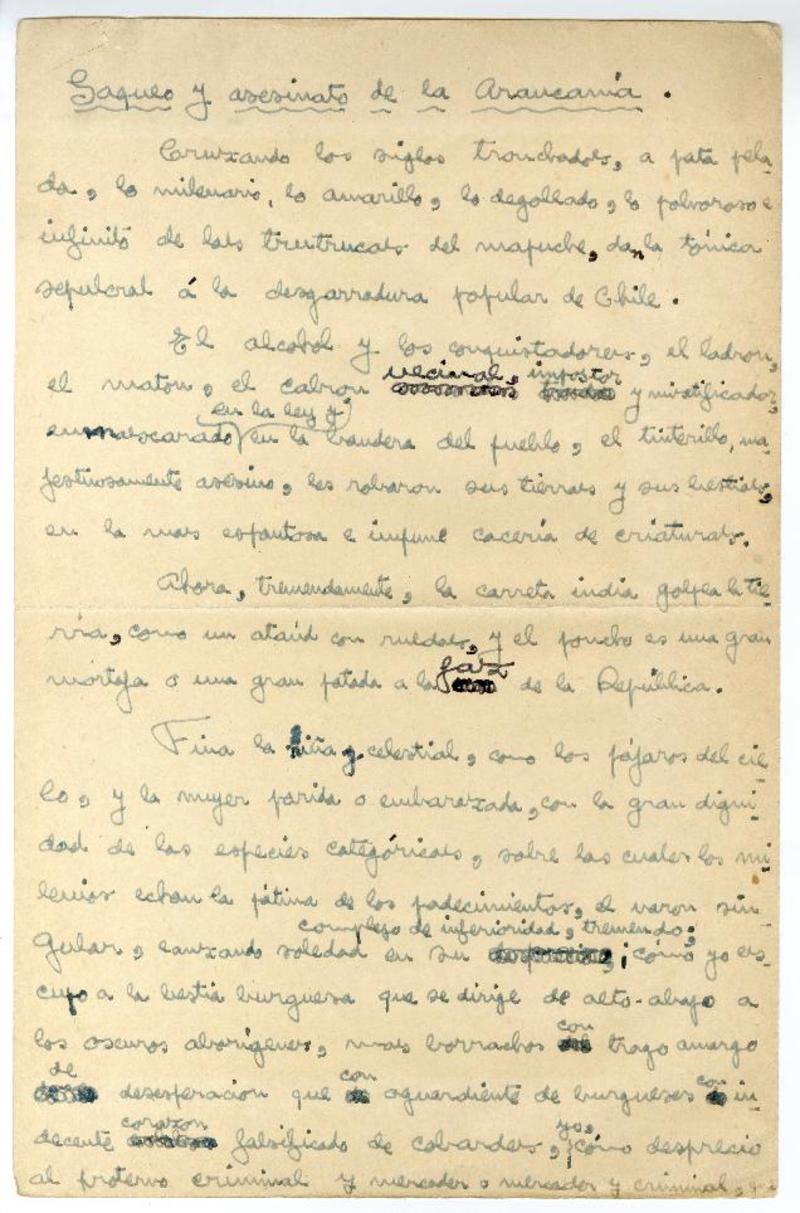 Saqueo y asesinato de la Araucanía.
Cruxando los siglos tronchados, a pata pela-
da, lo milenario, lo amarillo, lo degollado, lo polvoroso e
infinito de las trutrucas del mapuche, dan la tónica
sepulcral á la desgarradura popular de Chile.
El alcohol y los conquistadores, el ladron,
vecinal, impostor
el maton, el cabron y mixtificador,
en la ley y
enmascarado en la bandera del pueblo, el tinterillo, ma-
jestuosamente asesino, les robaron sus tierras y sus bestias,
en la mas espantosa e impune cacería de criaturas.
Ahora, tremendamente, la carreta india golpea la tie-
rra, como un ataúd con ruedas, y el poncho es una gran
faz
mortaja o una gran patada a la de la República.
Fina la niña y celestial, como los pájaros del cie-
lo, y la mujer parida o embarazada, con la gran digni-
dad de las especies categóricas, sobre las cuales los mi-
lenios echan la pátina de los padecimientos, el varon sin-
complejo de inferioridad, tremendo;
gular, lanxando soledad en su ¡cómo yo es-
cupo a la bestia burguesa que se dirige de alto-abajo a
con
los oscuros aborígenes, mas borrachos trago amargo
de con con
desesperacion que aguardiente de burgueses in-
corazon yo,
decente falsificado de cobardes, ¡cómo desprecio
al protervo criminal y mercader o mercader y criminal,